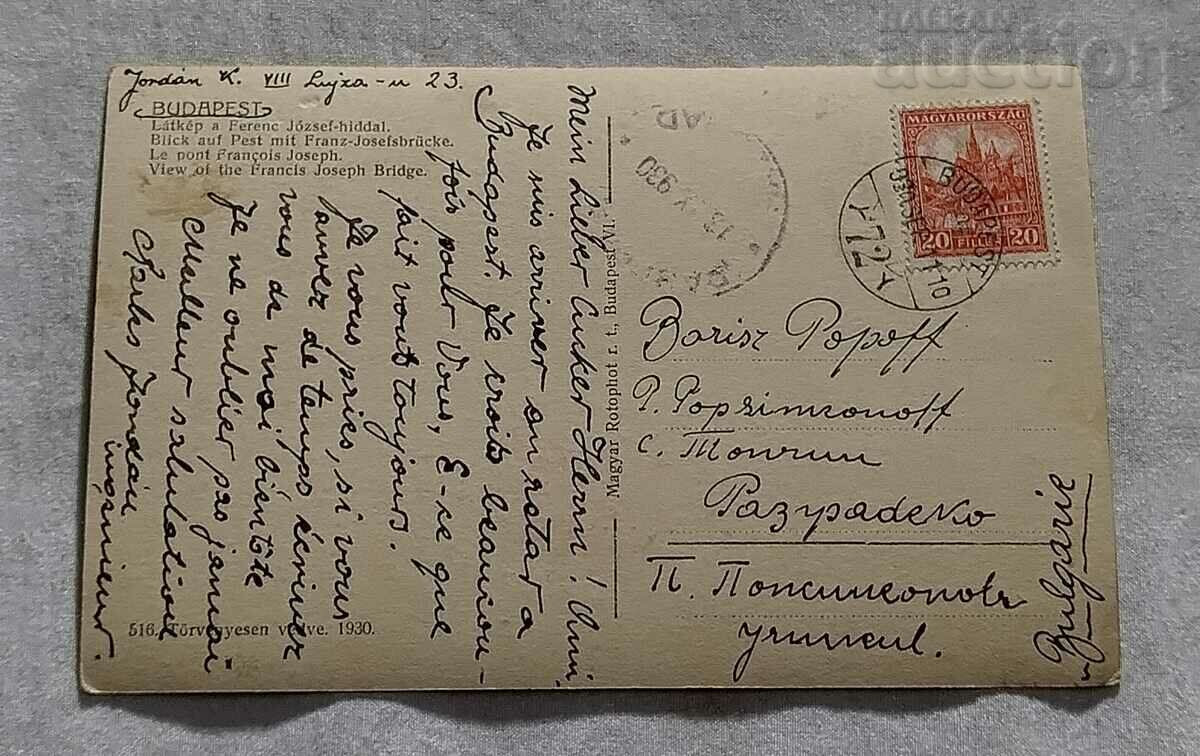 Jordán K. VIII Lujza-u 23.
BUDAPEST
Látkép a Ferenc József-híddal.
Blick auf Pest mit Franz-Josefsbrücke.
Le pont François Joseph.
View of the Francis Joseph Bridge.
Mein Lieber Cucker Herrn! Ami,
Je suis arriver en retard a
Budapest. Je crois beaucou-
fois pour Vous, E-ce que
fait vous toujours.
Je vous pries, si vous
avvez de temps écriver
vous de moi bientôte
Je ne oublier pas jamai-
Meilleur salutations
Charles Jordán
ingénieur.
516. Törvényesen védve. 1930.
Magyar Rotophot r. t., Budapest VI.
MAGYARORSZÁG
20 FILLÉR 20
BUDAPEST
72
930
Borisz Popoff
P. Popzimzonoff
с. Топчии
Разградско
П. Попсимеоновъ
учитель.
Bulgarie
BALKAN
auction